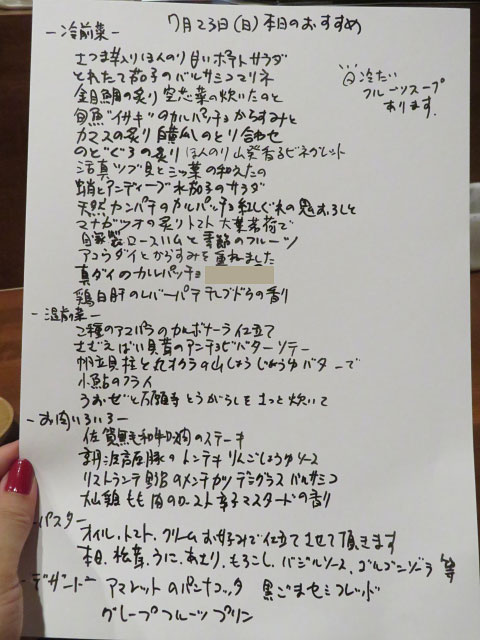 7月23日(日)本日のおすすめ
ー冷前菜ー
さつま芋入りほんのり甘いポテトサラダ
とれたて茄子のバルサミコマリネ
冷たい
フルーツスープ
あります。
金目鯛の炙り 空芯菜の炊いたのと
旬魚“イサキ”のカルパッチョ からすみと
カマスの炙り 白瓜のとり合わせ
のどぐろの炙り ほんのり山葵香るビネグレット
活真ツブ貝と三ッ葉の和えたの
蛸とアンディーブ 水茄子のサラダ
天然カンパチのカルパッチョ 紅しぐれの鬼おろしと
マナガツオの炙り トマト 大葉茗荷で
自家製ロースハムと季節のフルーツ
アコウダイとからすみを重ねました
真ダイのカルパッチョ
鶏白肝のレバーパテ 干しブドウの香り
ー温前菜ー
2種のアスパラのカルボナーラ仕立て
さざえばい貝茸のアンチョビバターソテー
帆立貝柱と丸オクラの山しょうじょうゆバターで
小鮎のフライ
うおぜと万願寺とうがらしをさっと炊いて
ーお肉いろいろー
佐賀鮮和牛肉のステーキ
朝霧高原豚のトンテキ りんごしょうゆソース
リストランテのメンチカツ デミグラス バルサミコ
大山鶏もも肉のロースト 辛子マスタードの香り
ーパスター
オイル、トマト、クリーム お好みで仕立てさせて頂きます
本日、松茸、うに、あさり、もろこし、バジルソース、ゴルゴンゾーラ 等
ーデザートー アマレットのパンナコッタ 黒ごまセミフレッド
グレープフルーツプリン